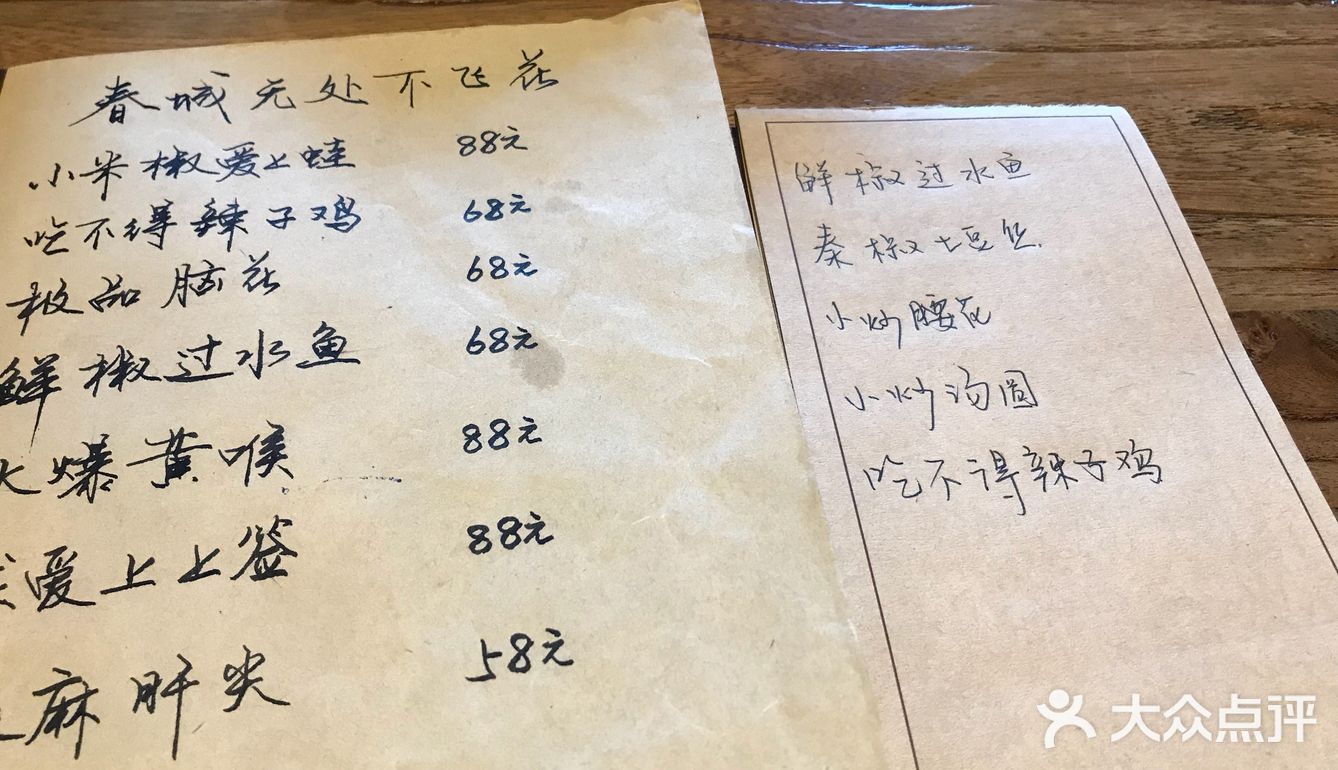 春城无处不飞花
小米椒爱上蛙 88元
吃不得辣子鸡 68元
极品脑花 68元
鲜椒过水鱼 68元
火爆黄喉 88元
爱上上签 88元
麻肝尖 58元
鲜椒过水鱼
秦椒土豆丝
小炒腰花
小炒汤圆
吃不得辣子鸡
大众点评